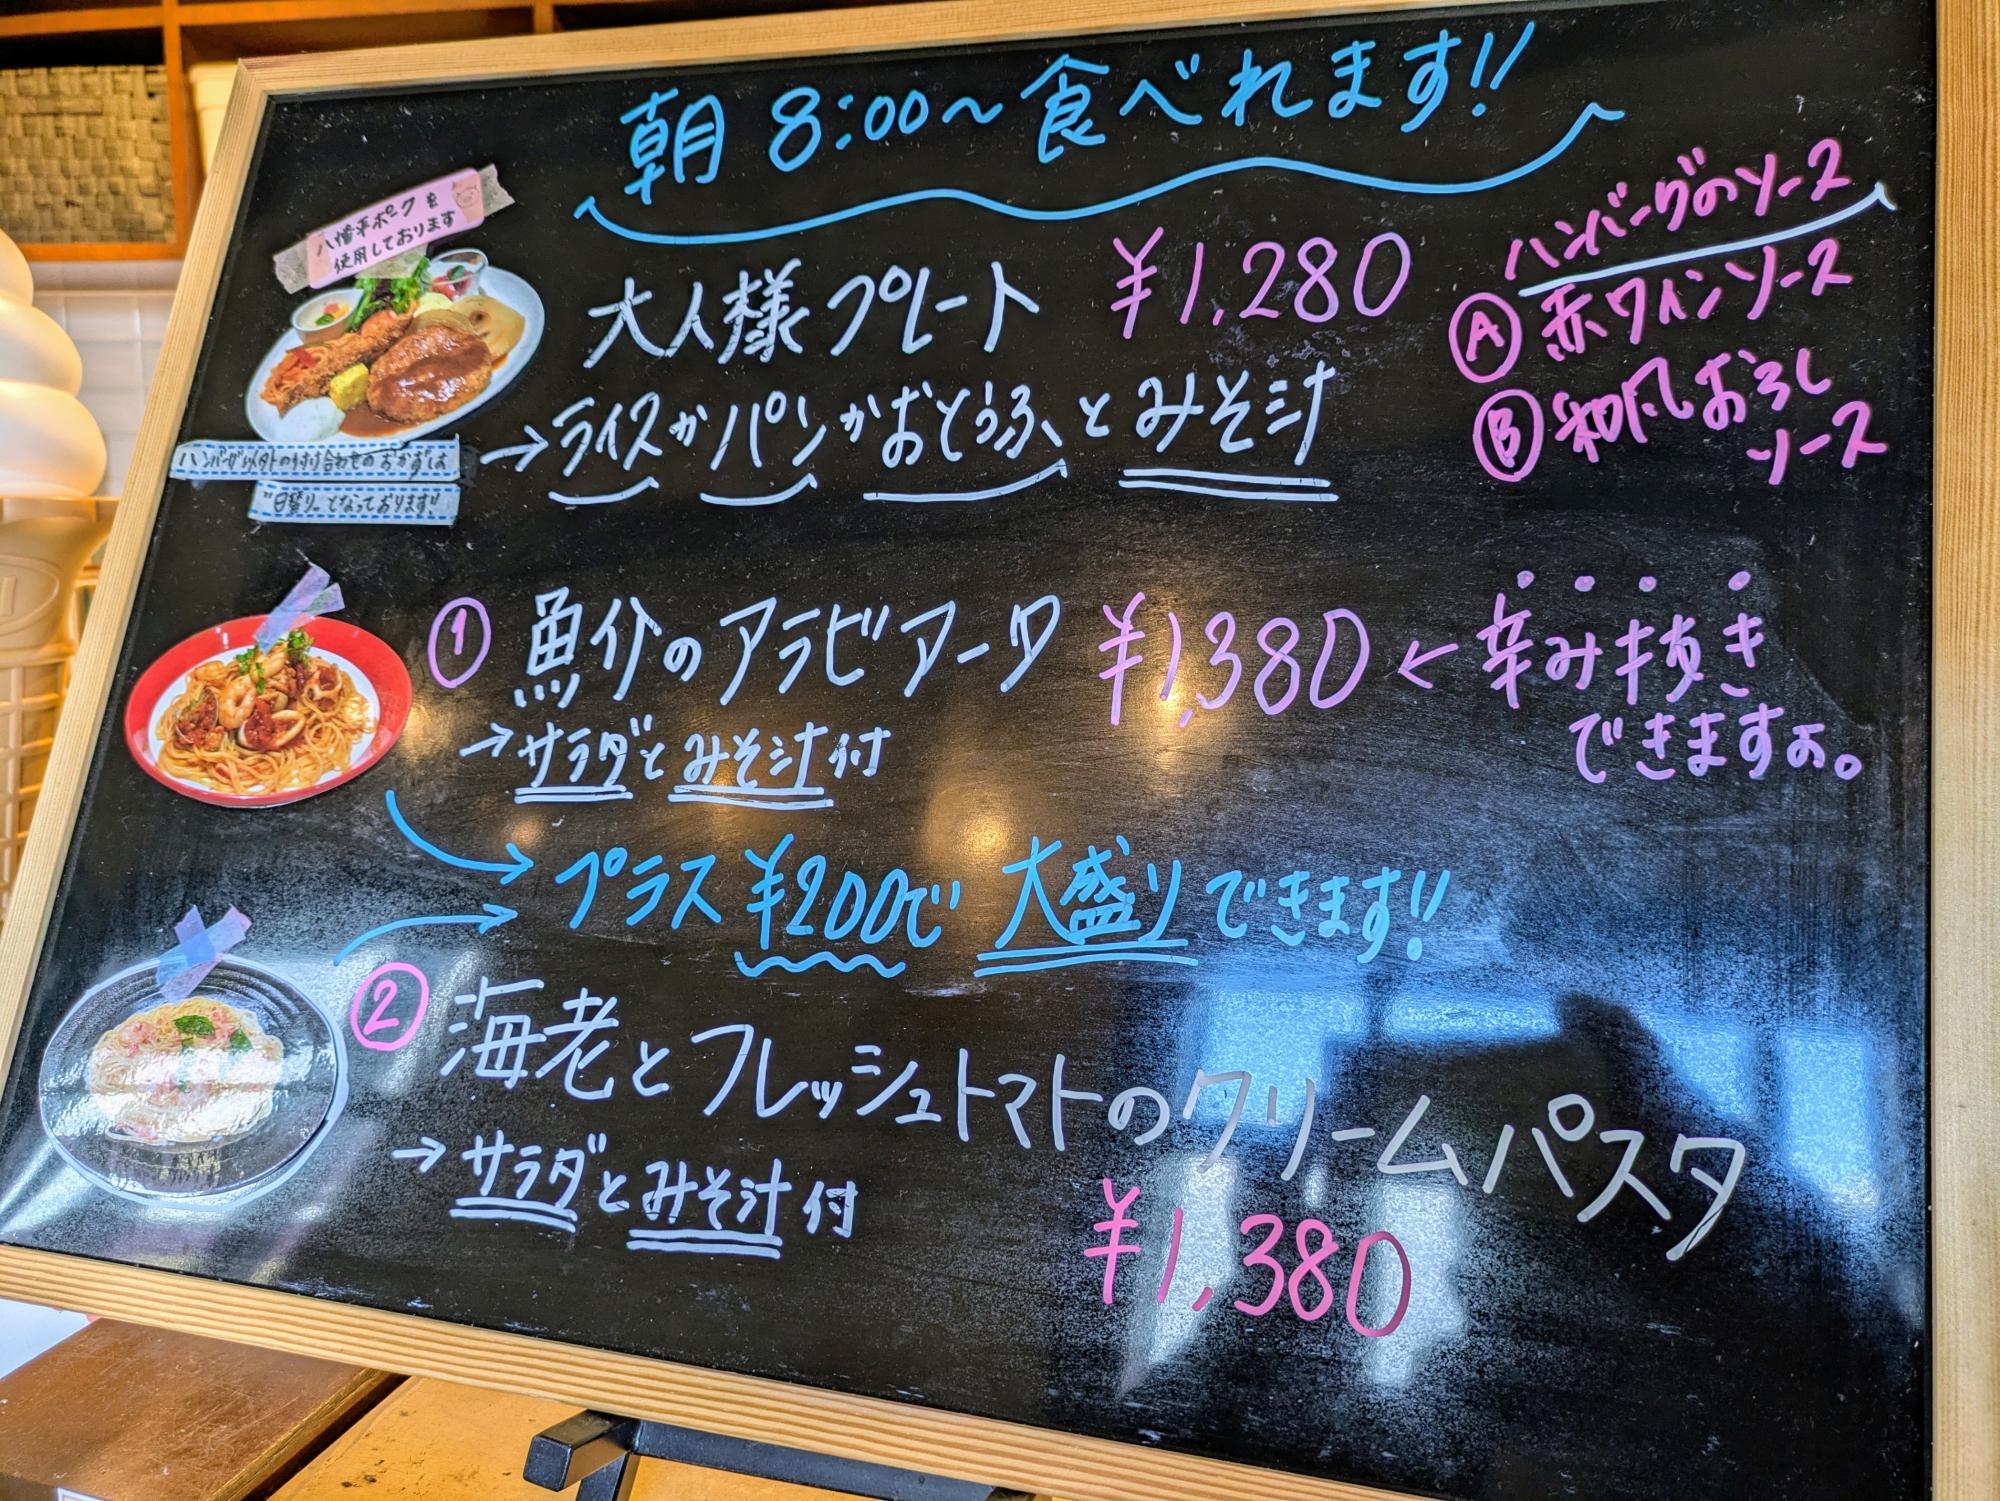 朝 8:00〜食べれます!!
八幡平ポークを
使用しております
大人様プレート ¥1,280
→ライスかパンかおとうふ、とみそ汁
ハンバーグ以外の付け合わせのおかずは
"日替り"となっております!
ハンバーグのソース
Ⓐ赤ワインソース
Ⓑ和風おろし
ソース
①魚介のアラビアータ ¥1,380←辛み抜き
できますよ。
→サラダとみそ汁付
プラス¥200で大盛りできます!!
②海老とフレッシュトマトのクリームパスタ
→サラダとみそ汁付
¥1,380